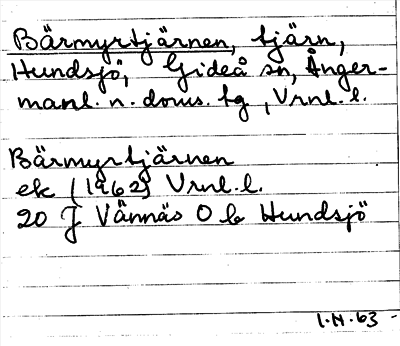 Bärmyrtjärnen, tjärn,
Hundsjö, Gideå sn, Ånger-
manl. n. doms. tg, Vrnl. l.
Bärmyrtjärnen
ek (1962) Vrnl. l.
20 J Vännäs O b Hundsjö